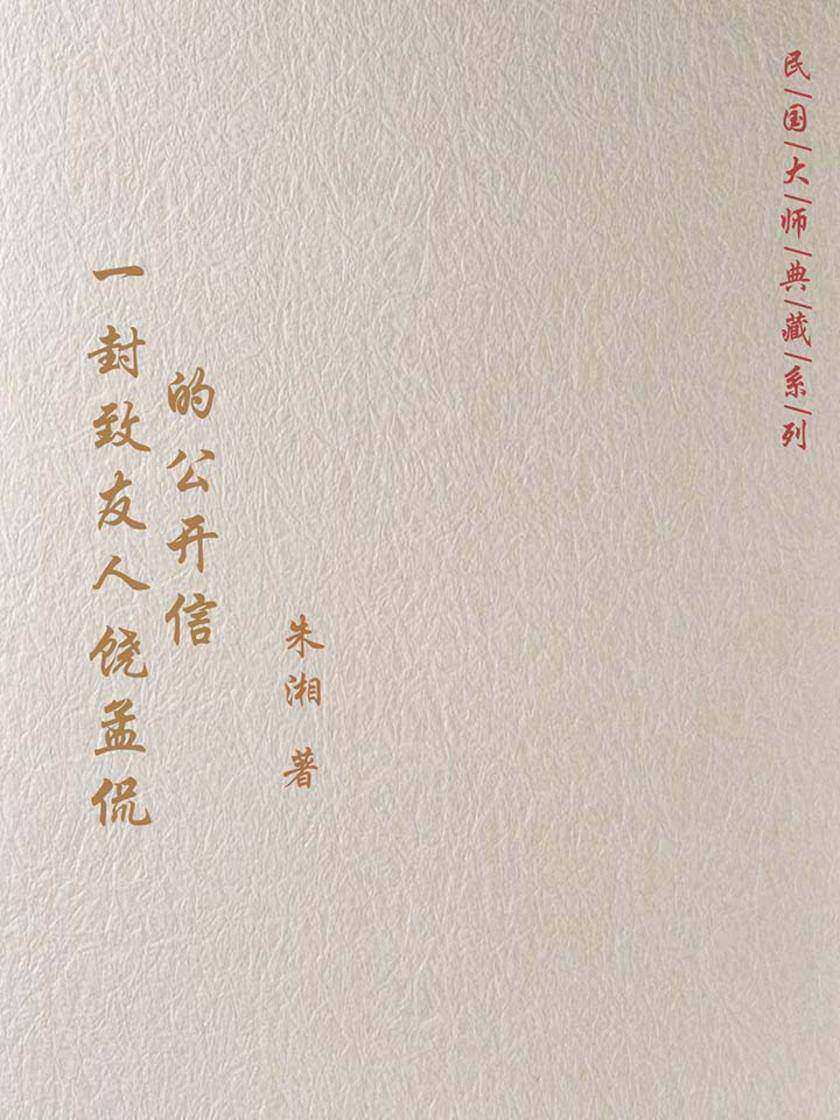 民/国/大/师/典/藏/系/列
一封致友人饶孟侃
的公开信
朱湘 著